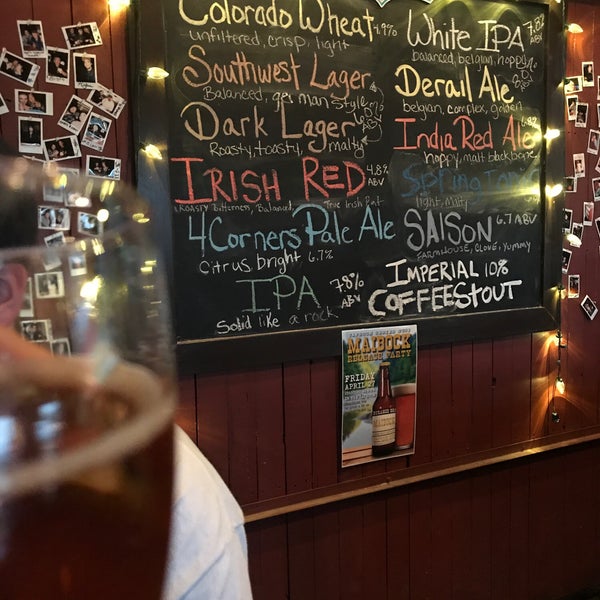 Colorado Wheat
unfiltered, crisp, light
Southwest Lager
Balanced, german style
Dark Lager
Roasty, toasty, malty
IRISH RED 4.8% ABV
ROASTY BITTERNESS, BALANCED, TRUE IRISH
4 CORNERS PALE ALE
CITRUS BRIGHT 6.7%
IPA 7.8% ABV
Solid like a rock
WHITE IPA
balanced, belgian, hoppy
Derail Ale
belgian, complex, golden
India Red Ale
hoppy, malt backbone
light, malty
SAISON 6.7 ABV
FARMHOUSE, CLOVE, YUMMY
IMPERIAL 10%
COFFEE STOUT
MAIBOCK
RELEASE PARTY
FRIDAY
APRIL 27